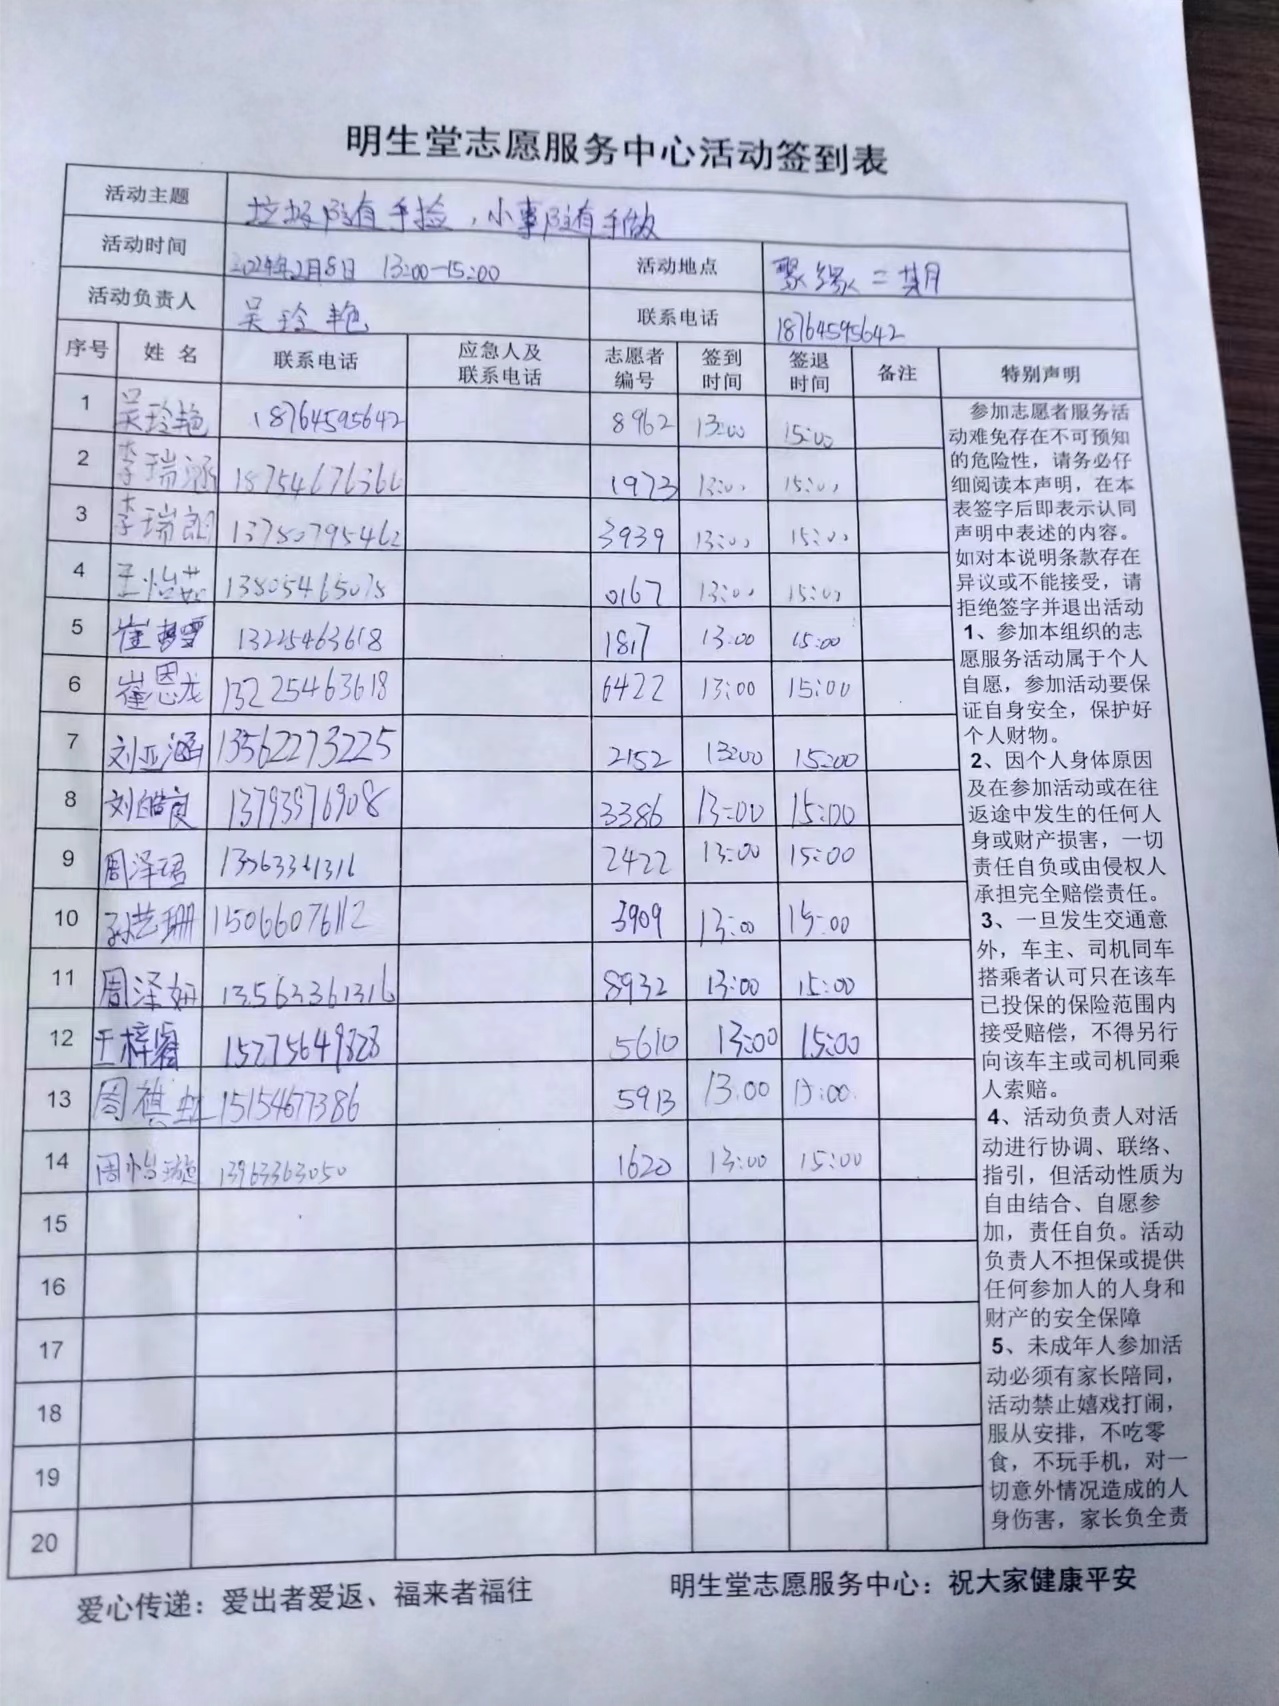 明生堂志愿服务中心活动签到表
活动主题 垃圾随手捡，小事随手做
活动时间 2024年2月8日 13:00-15:00 活动地点 聚缘二期
活动负责人 吴玲艳 联系电话 18764595642
序号 姓名 联系电话 应急人及联系电话 志愿者编号 签到时间 签退时间 备注 特别声明
1 吴玲艳 18764595642 8962 13:00 15:00
2 李瑞涵 18754676366 1973 13:00 15:00
3 李瑞朗 13780795462 3939 13:00 15:00
4 王怡茹 13805465075 0167 13:00 15:00
5 崔梦雪 13225463618 1817 13:00 15:00
6 崔恩龙 13225463618 6422 13:00 15:00
7 刘亚涵 13562273225 2152 13:00 15:00
8 刘皓良 13793976908 3386 13:00 15:00
9 周泽珺 13563361316 2422 13:00 15:00
10 孙艺珊 15066076112 3909 13:00 15:00
11 周泽妍 13563361316 8932 13:00 15:00
12 王梓睿 15275649828 5610 13:00 15:00
13 周祺 15154677386 5913 13:00 15:00
14 周怡璇 13963363050 1620 13:00 15:00
15
16
17
18
19
20
参加志愿者服务活
动难免存在不可预知
的危险性，请务必仔
细阅读本声明，在本
表签字后即表示认同
声明中表述的内容。
如对本说明条款存在
异议或不能接受，请
拒绝签字并退出活动
1、参加本组织的志
愿服务活动属于个人
自愿，参加活动要保
证自身安全，保护好
个人财物。
2、因个人身体原因
及在参加活动或在往
返途中发生的任何人
身或财产损害，一切
责任自负或由侵权人
承担完全赔偿责任。
3、一旦发生交通意
外，车主、司机同车
搭乘者认可只在该车
已投保的保险范围内
接受赔偿，不得另行
向该车主或司机同乘
人索赔。
4、活动负责人对活
动进行协调、联络、
指引，但活动性质为
自由结合、自愿参
加，责任自负。活动
负责人不担保或提供
任何参加人的人身和
财产的安全保障
5、未成年人参加活
动必须有家长陪同，
活动禁止嬉戏打闹，
服从安排，不吃零
食，不玩手机，对一
切意外情况造成的人
身伤害，家长负全责
爱心传递：爱出者爱返、福来者福往 明生堂志愿服务中心：祝大家健康平安